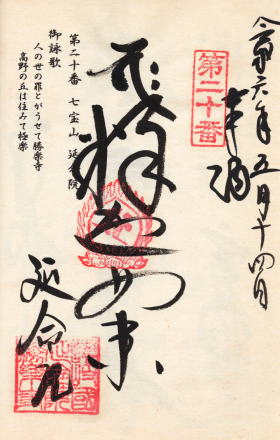 令和六年五月十四日
奉拝
第二十番
釈迦如来
延命院
第二十番 七宝山 延命院
御詠歌
人の世の罪とがうせて勝樂寺
高野の丘は住みて極樂